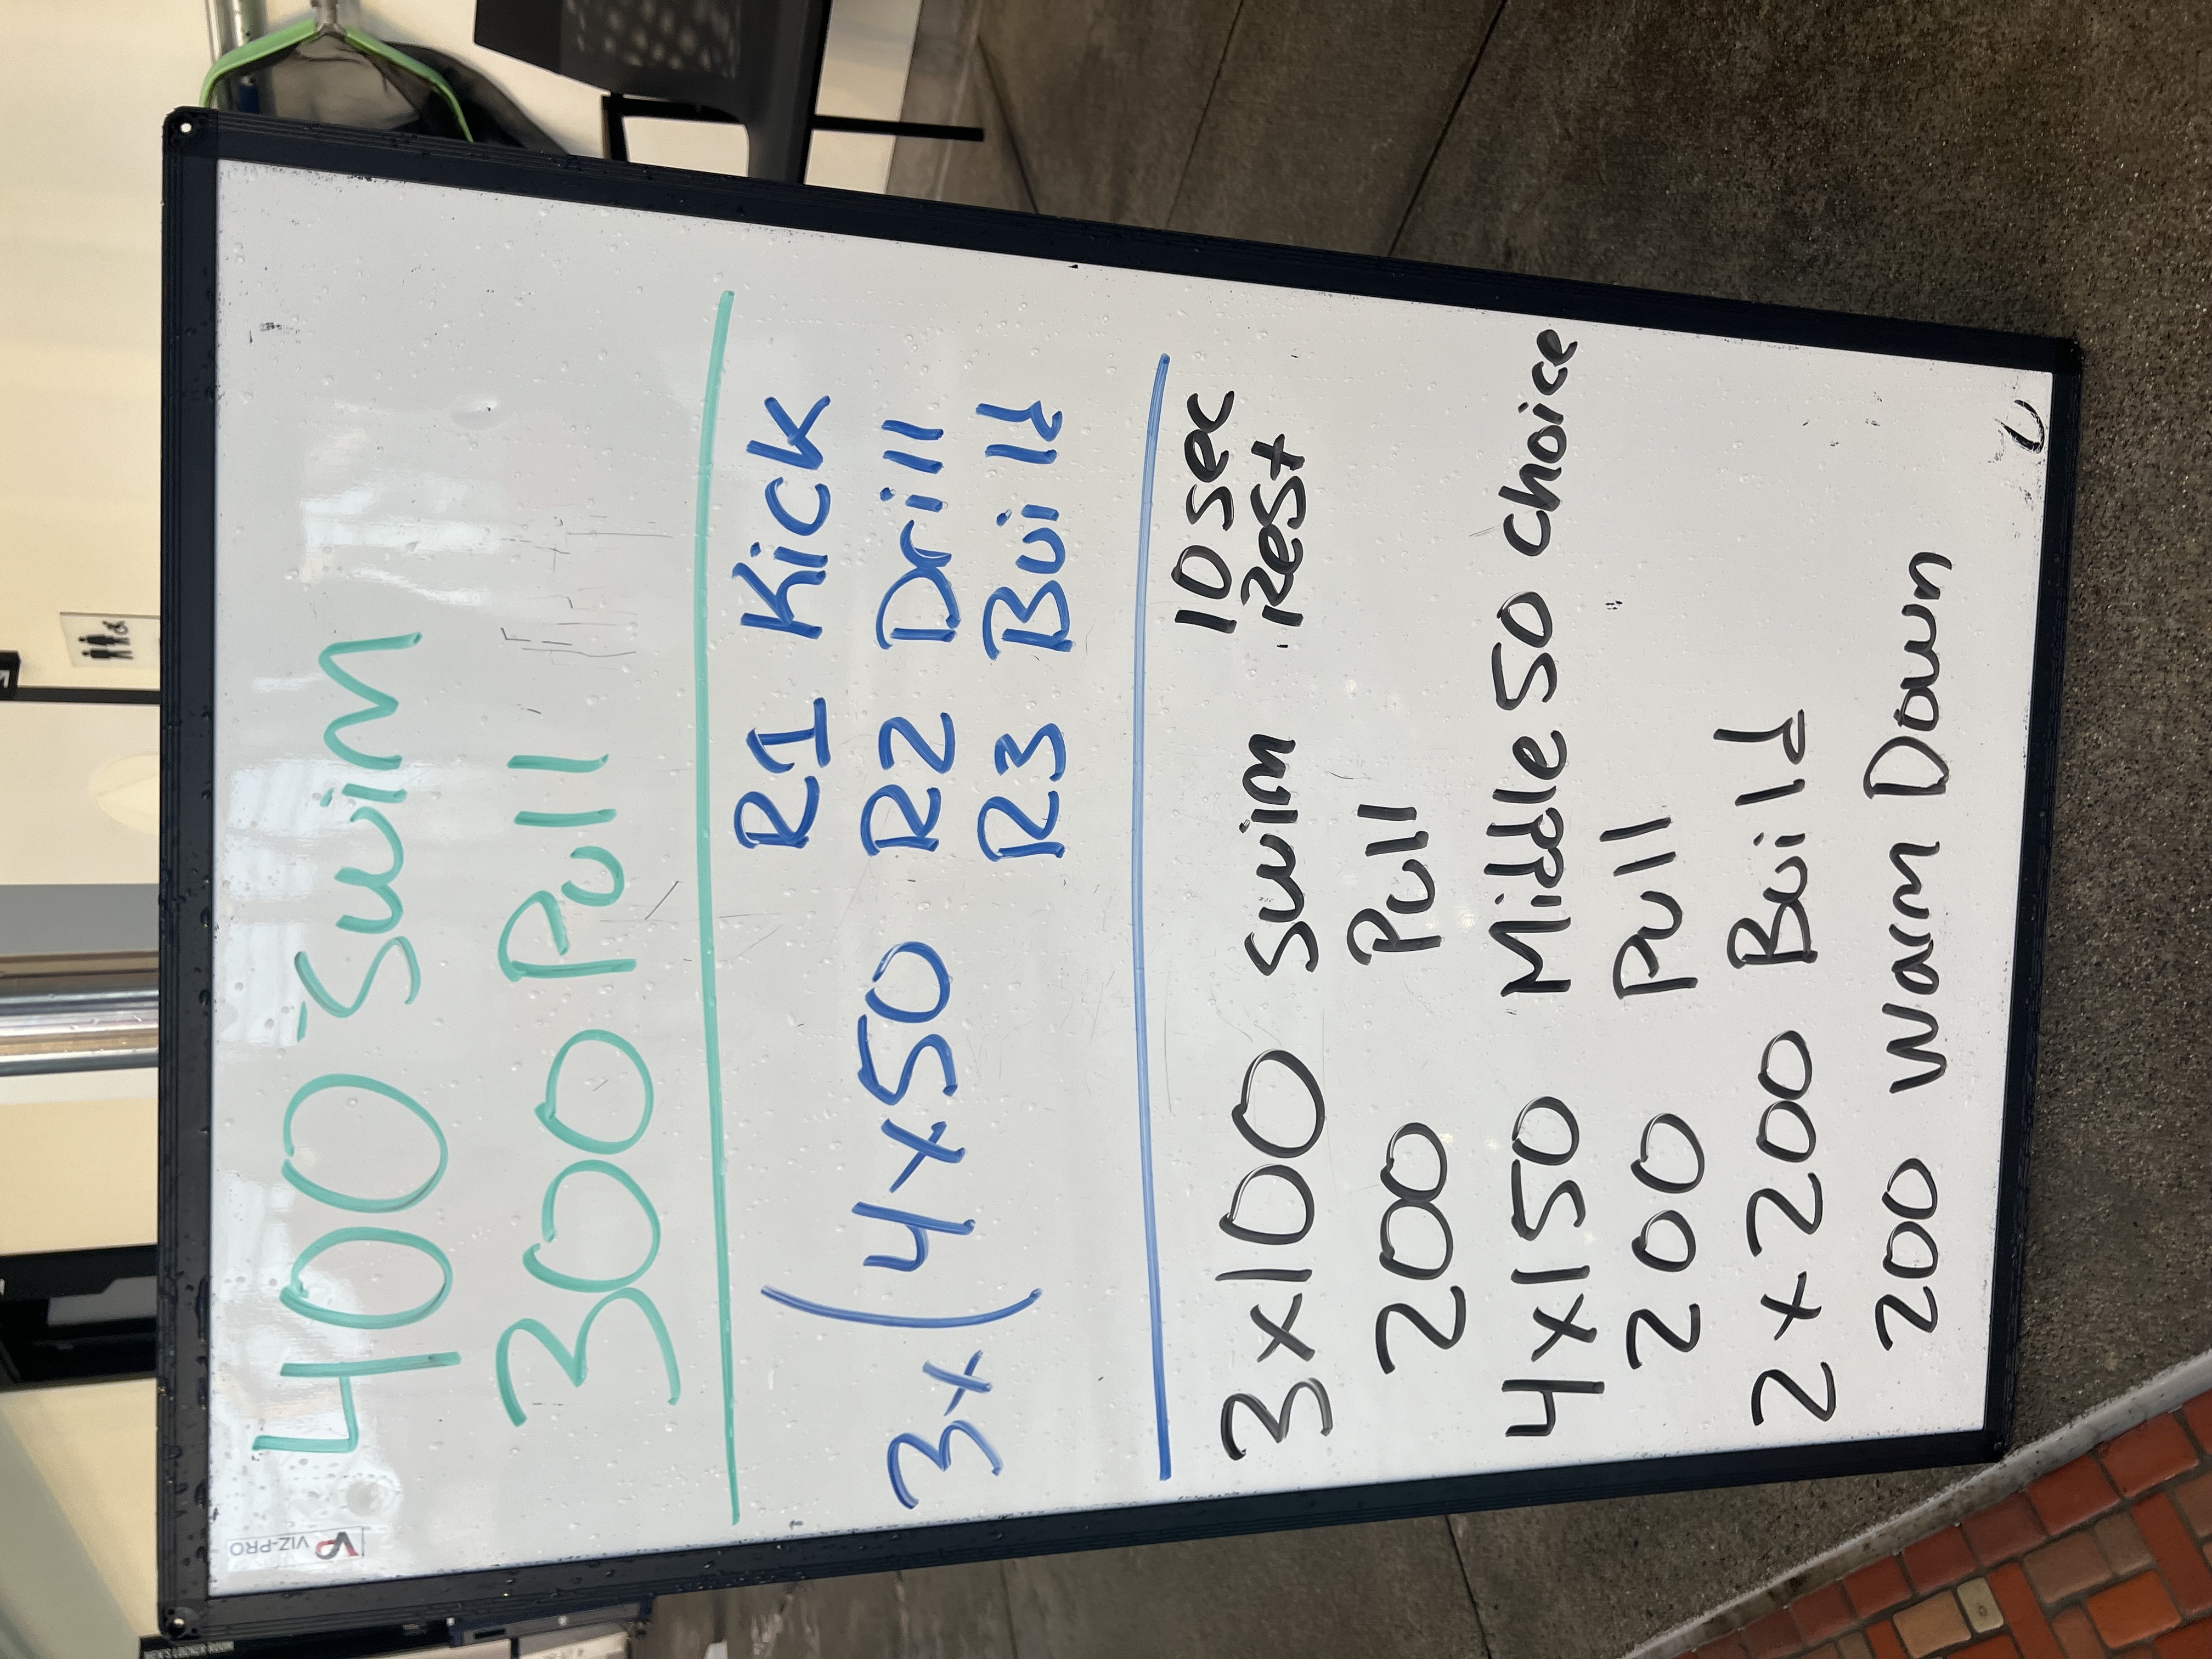 VIZ-PRO
400 Swim
300 Pull
R1 Kick
3x ( 4x50 R2 Drill
R3 Build
3x100 Swim 10 sec
rest
200 Pull
4x150 Middle 50 choice
200 Pull
2x200 Build
200 Warm Down